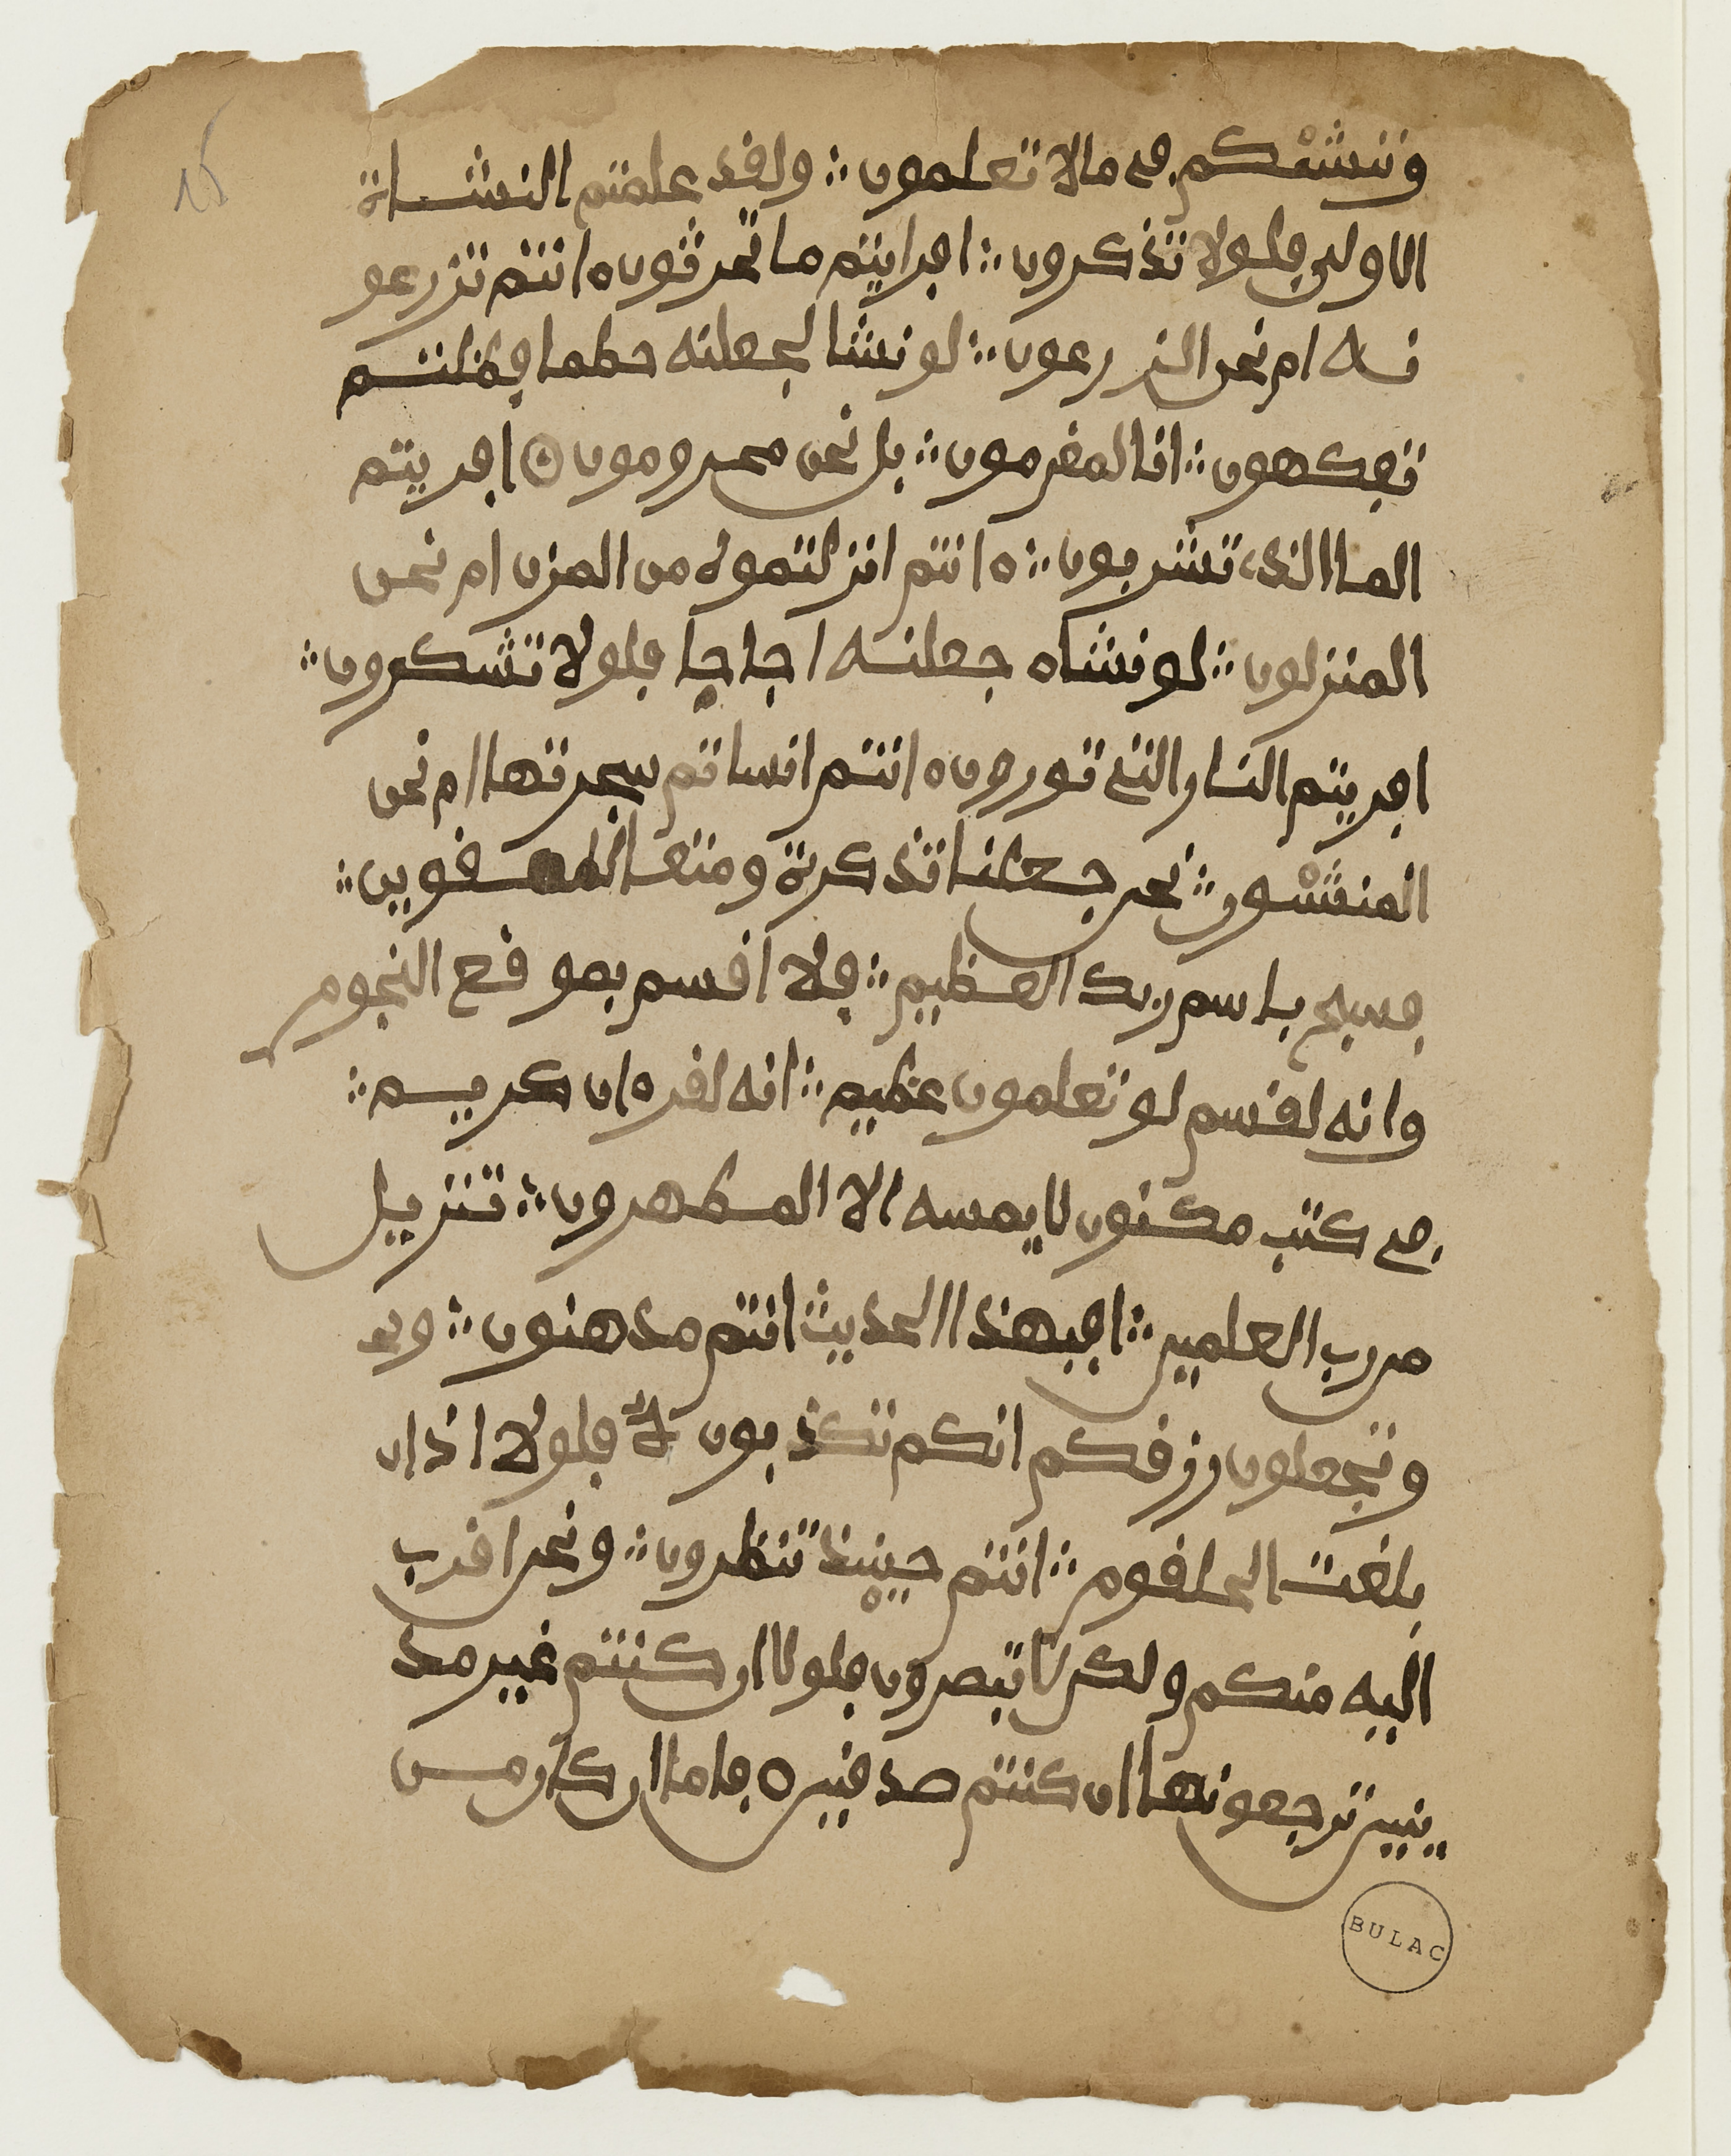 وننشئكم في ما لا تعلمون ولقد علمتم النشاة
الاولى فلولا تذكرون افرايتم ما تحرثون ءانتم تزرعو
نه ام نحن الزرعون لو نشا لجعلنه حطما فظلتم
تفكهون انا لمغرمون بل نحن محرومون افريتم
الما الذي تشربون ءانتم انزلتموه من المزن ام نحن
المنزلون لو نشاء جعلنه اجاجا فلولا تشكرون
افريتم النار التي تورون ءانتم انشاتم شجرتها ام نحن
المنشون نحن جعلنا تذكرة ومتعا للمقوين
فسبح باسم ربك العظيم فلا اقسم بموقع النجوم
وانه لقسم لو تعلمون عظيم انه لقرءان كريم
في كتب مكنون لا يمسه الا المطهرون تنزيل
من رب العلمين افبهذا الحديث انتم مدهنون
وتجعلون رزقكم انكم تكذبون فلولا اذا
بلغت الحلقوم انتم حينيذ تنظرون ونحن اقرب
اليه منكم ولكن لا تبصرون فلولا ان كنتم غير مد
ينين ترجعونها ان كنتم صدقين فاما ان كان من
BULAC